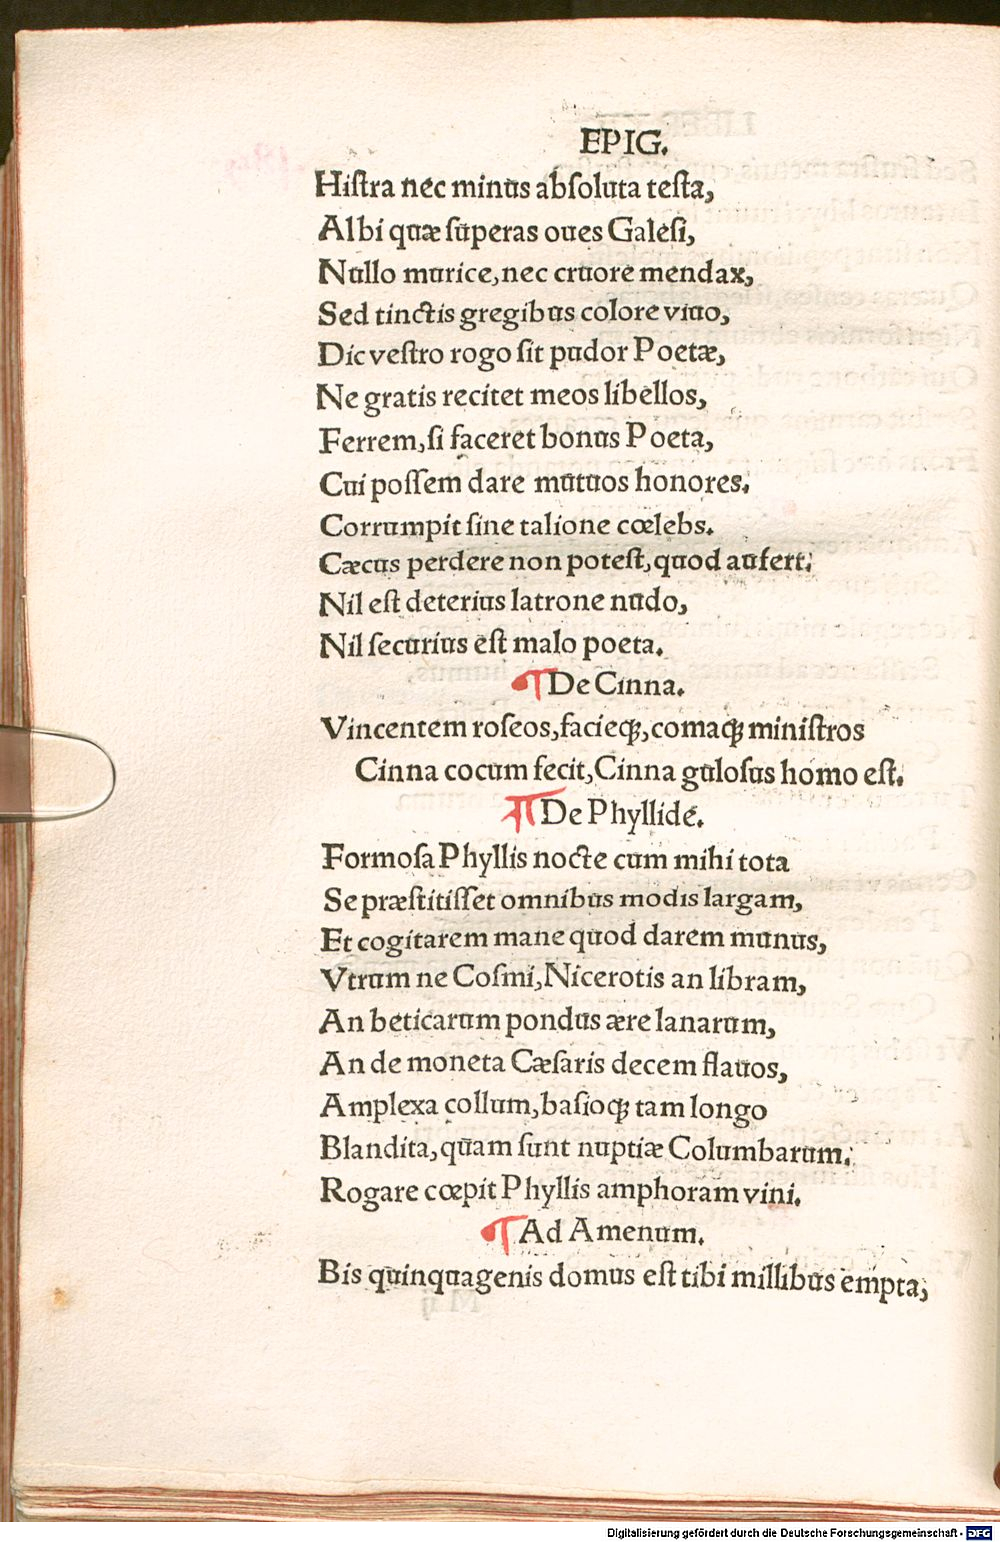 EPIG.
Hiſtra nec minus abſoluta teſta,
Albi quæ ſuperas oues Galeſi,
Nullo murice, nec cruore mendax,
Sed tinctis gregibus colore viuo,
Dic veſtro rogo ſit pudor Poetæ,
Ne gratis recitet meos libellos,
Ferrem, ſi faceret bonus Poeta,
Cui poſſem dare mutuos honores.
Corrumpit ſine talione cœlebs.
Cæcus perdere non poteſt, quod aufert:
Nil eſt deterius latrone nudo,
Nil ſecurius eſt malo poeta.
¶ De Cinna.
Vincentem roſeos, facieq;, comaq; miniſtros
Cinna cocum fecit, Cinna guloſus homo eſt.
¶ De Phyllide.
Formoſa Phyllis nocte cum mihi tota
Se præſtitiſſet omnibus modis largam,
Et cogitarem mane quod darem munus,
Vtrum ne Coſmi, Nicerotis an libram,
An beticarum pondus ære lanarum,
An de moneta Cæſaris decem flauos,
Amplexa collum, baſioq; tam longo
Blandita, quam ſunt nuptiæ Columbarum:
Rogare cœpit Phyllis amphoram vini.
¶ Ad Amenum.
Bis quinquagenis domus eſt tibi millibus empta,
Digitalisierung gefördert durch die Deutsche Forschungsgemeinschaft - DFG